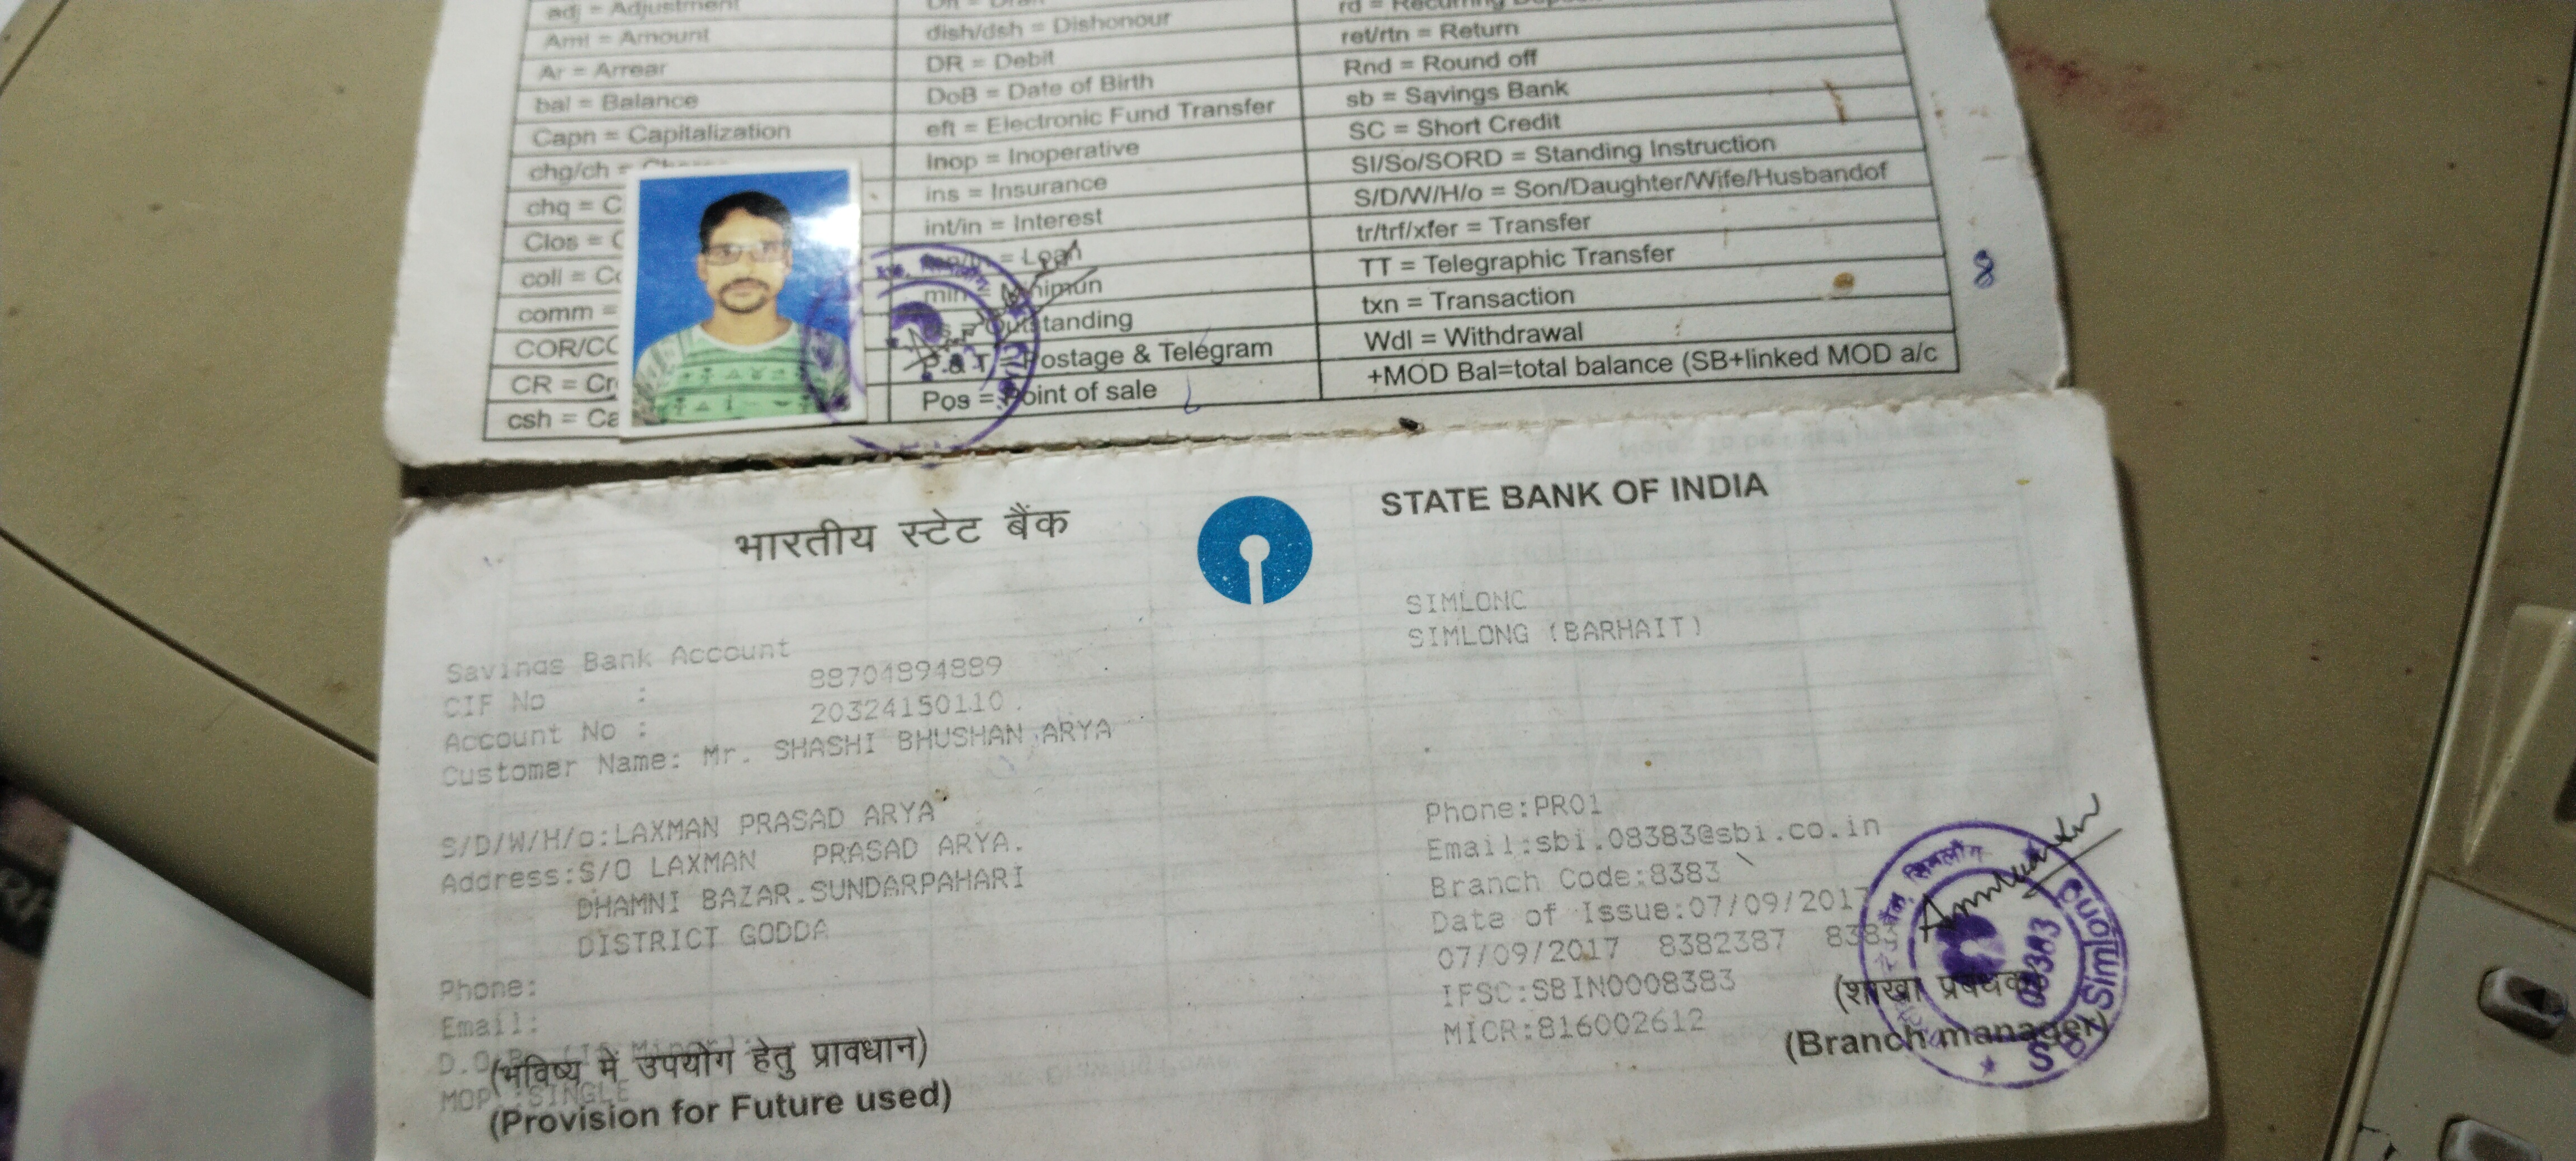 adj = Adjustment
Amt = Amount
Ar = Arrear
bal = Balance
Capn = Capitalization
chg/ch =
chq = C
Clos = C
coll = Co
comm =
COR/CO
CR = Cr
csh = Ca
dish/dsh = Dishonour
DR = Debit
DoB = Date of Birth
eft = Electronic Fund Transfer
Inop = Inoperative
ins = Insurance
int/in = Interest
= Loan
min = Minimun
= Outstanding
P.& T = Postage & Telegram
Pos = Point of sale
ret/rtn = Return
Rnd = Round off
sb = Savings Bank
SC = Short Credit
SI/So/SORD = Standing Instruction
S/D/W/H/o = Son/Daughter/Wife/Husbandof
tr/trf/xfer = Transfer
TT = Telegraphic Transfer
txn = Transaction
Wdl = Withdrawal
+MOD Bal=total balance (SB+linked MOD a/c
8
भारतीय स्टेट बैंक
STATE BANK OF INDIA
SIMLONG
SIMLONG (BARHAIT)
Savings Bank Account
CIF No : 88704894889
Account No : 20324150110.
Customer Name: Mr. SHASHI BHUSHAN ARYA
S/D/W/H/o:LAXMAN PRASAD ARYA
Address:S/O LAXMAN PRASAD ARYA.
DHAMNI BAZAR.SUNDARPAHARI
DISTRICT GODDA
Phone:
Email:
MOP :SINGLE
(भविष्य में उपयोग हेतु प्रावधान)
(Provision for Future used)
Phone:PRO1
Email:sbi.08383@sbi.co.in
Branch Code:8383
Date of Issue:07/09/2017
07/09/2017 8382387 8383
IFSC:SBIN0008383
MICR:816002612
(शाखा प्रबंधक)
(Branch manager)
08383
Simlong